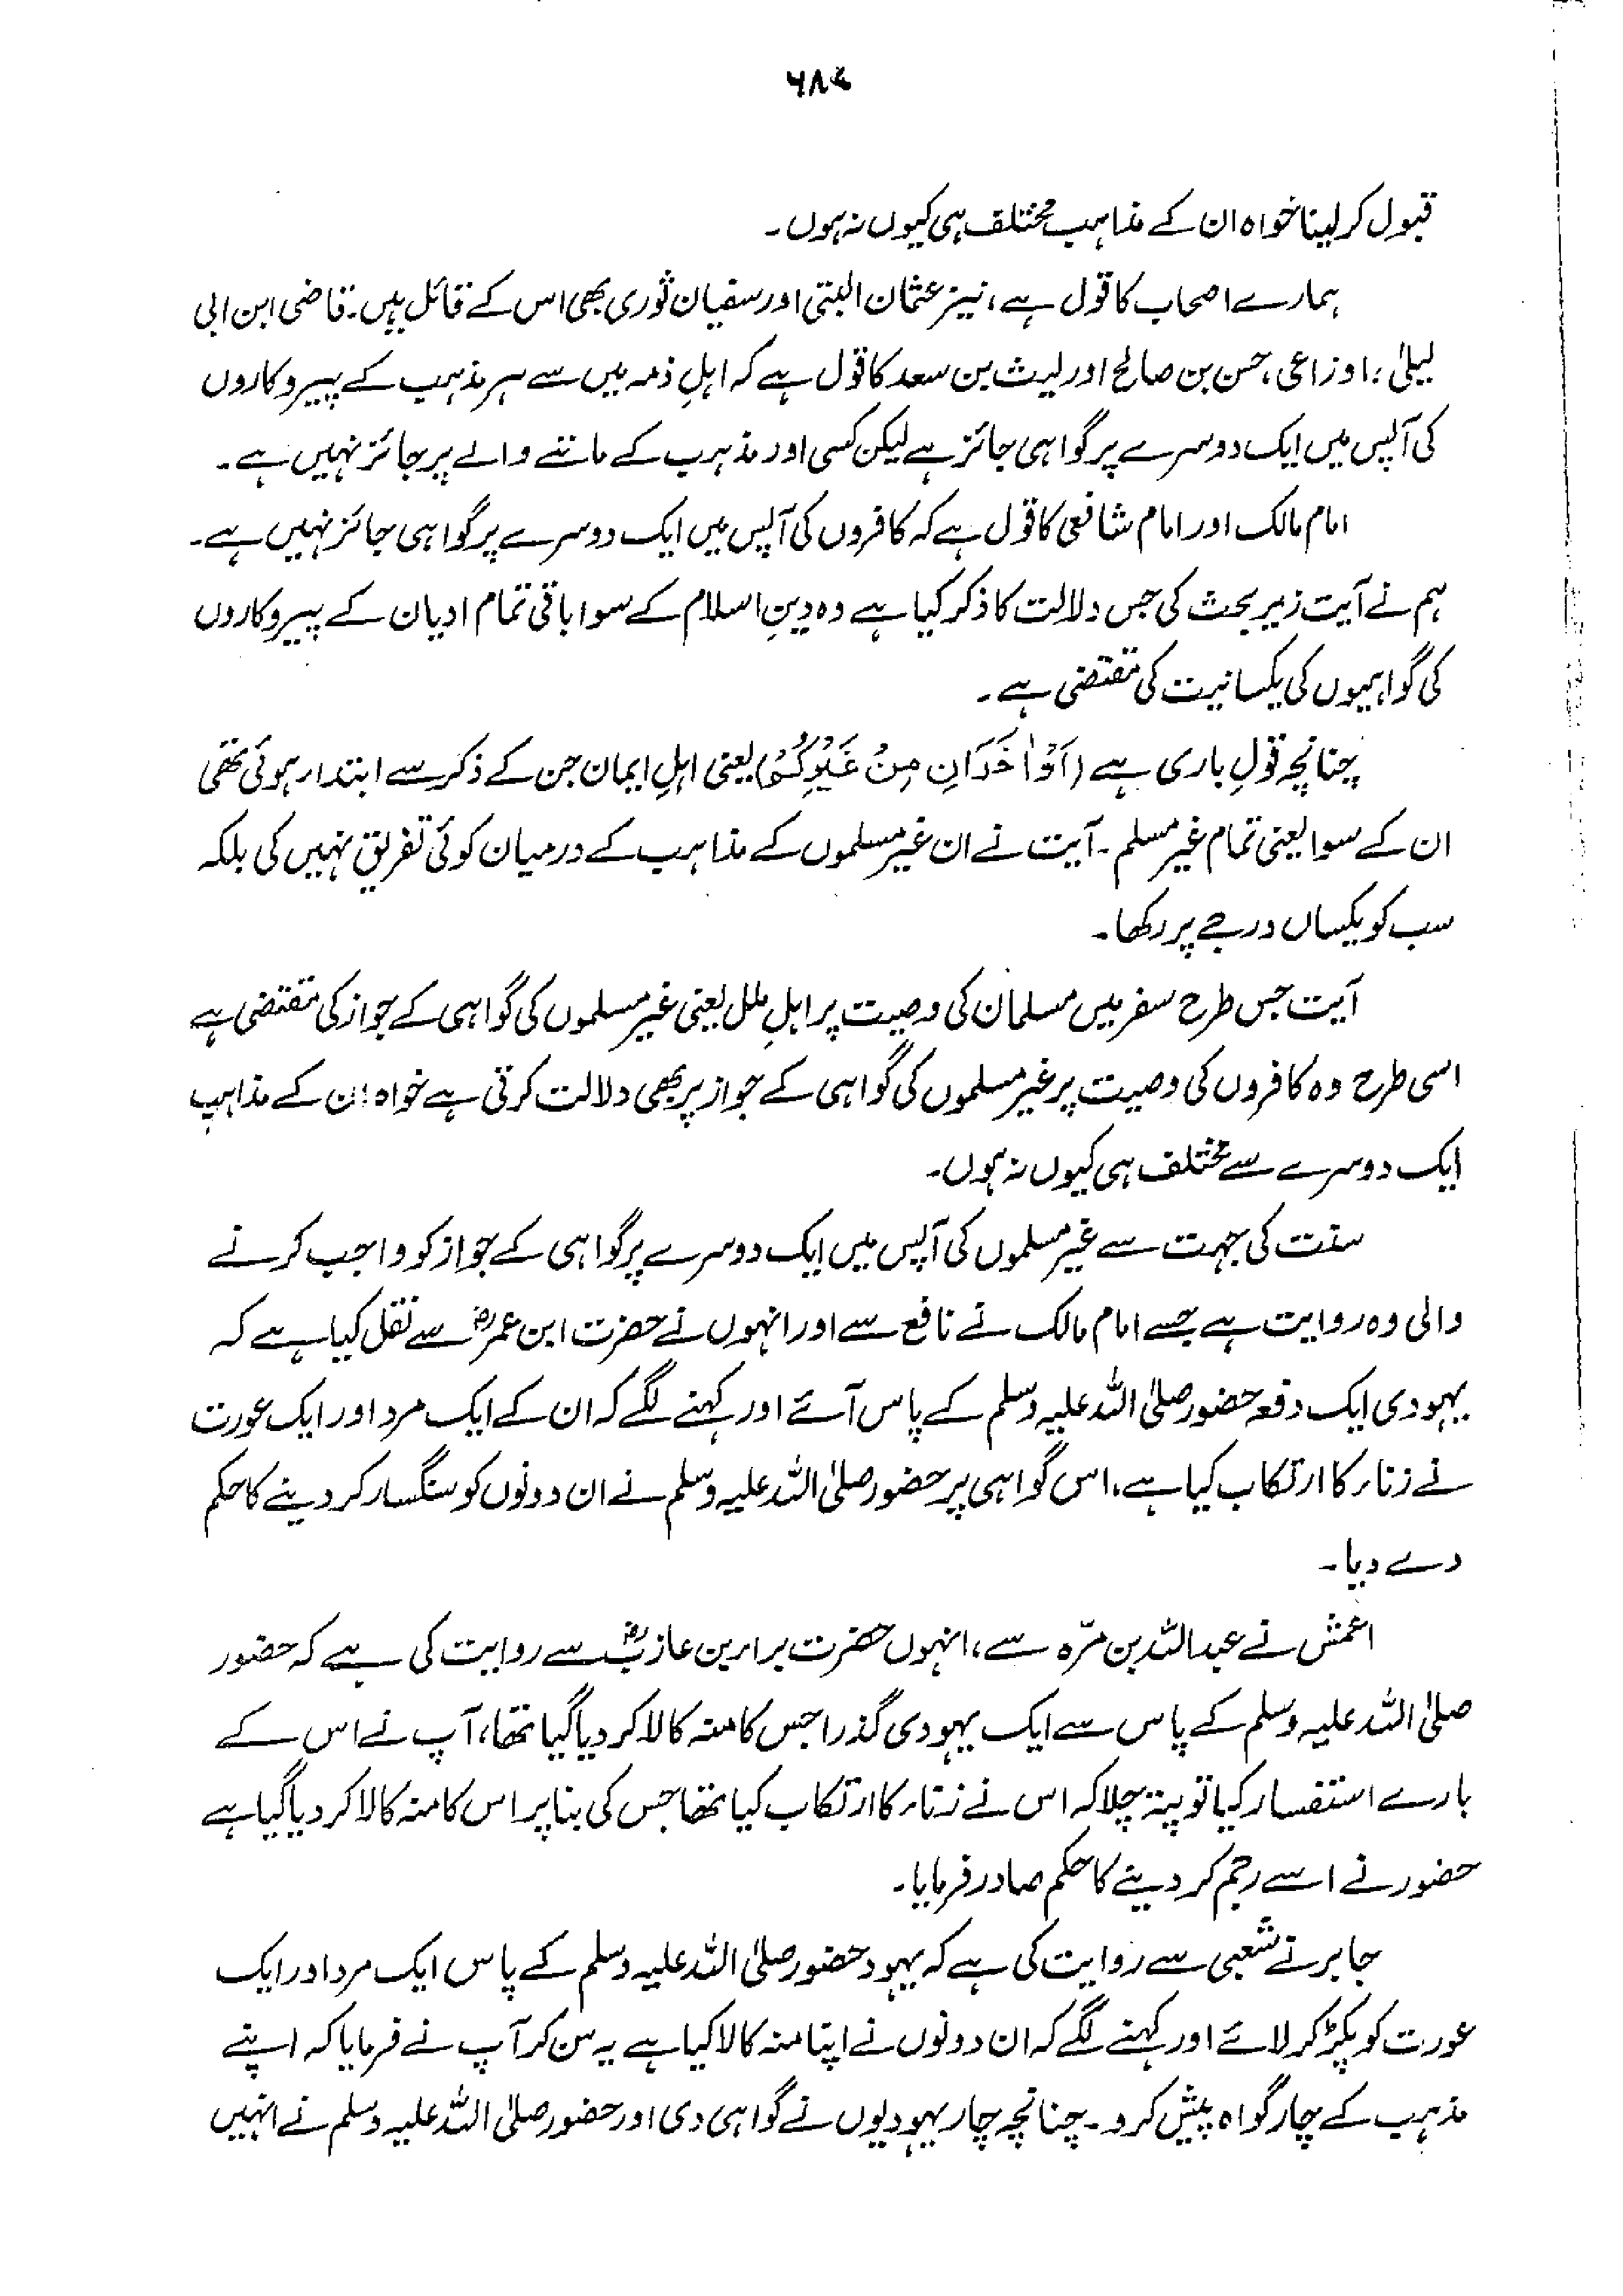 ۶۸۴
قبول کر لینا خواہ ان کے مذاہب مختلف ہی کیوں نہ ہوں۔
ہمارے اصحاب کا قول ہے، نیز عثمان البتی اور سفیان ثوری بھی اس کے قائل ہیں۔ قاضی ابن ابی
لیلیٰ، اوزاعی، حسن بن صالح اور لیث بن سعد کا قول ہے کہ اہلِ ذمہ میں سے ہر مذہب کے پیروکاروں
کی آپس میں ایک دوسرے پر گواہی جائز ہے لیکن کسی اور مذہب کے ماننے والے پر جائز نہیں ہے۔
امام مالک اور امام شافعی کا قول ہے کہ کافروں کی آپس میں ایک دوسرے پر گواہی جائز نہیں ہے۔
ہم نے آیت زیر بحث کی جس دلالت کا ذکر کیا ہے وہ دینِ اسلام کے سوا باقی تمام ادیان کے پیروکاروں
کی گواہیوں کی یکسانیت کی مقتضی ہے۔
چنانچہ قولِ باری ہے (اَوْ اٰخَرَانِ مِنْ غَیْرِکُمْ) یعنی اہلِ ایمان جن کے ذکر سے ابتداء ہوئی تھی
ان کے سوا یعنی تمام غیر مسلم۔ آیت نے ان غیر مسلموں کے مذاہب کے درمیان کوئی تفریق نہیں کی بلکہ
سب کو یکساں درجے پر رکھا۔
آیت جس طرح سفر میں مسلمان کی وصیت پر اہلِ ملل یعنی غیر مسلموں کی گواہی کے جواز کی مقتضی ہے
اسی طرح وہ کافروں کی وصیت پر غیر مسلموں کی گواہی کے جواز پر بھی دلالت کرتی ہے خواہ ان کے مذاہب
ایک دوسرے سے مختلف ہی کیوں نہ ہوں۔
سنت کی جہت سے غیر مسلموں کی آپس میں ایک دوسرے پر گواہی کے جواز کو واجب کرنے
والی وہ روایت ہے جسے امام مالک نے نافع سے اور انہوں نے حضرت ابن عمرؓ سے نقل کیا ہے کہ
یہودی ایک دفعہ حضور صلی اللہ علیہ وسلم کے پاس آئے اور کہنے لگے کہ ان کے ایک مرد اور ایک عورت
نے زناء کا ارتکاب کیا ہے، اس گواہی پر حضور صلی اللہ علیہ وسلم نے ان دونوں کو سنگسار کر دینے کا حکم
دے دیا۔
اعمش نے عبداللہ بن مرّہ سے، انہوں حضرت براء بن عازبؓ سے روایت کی ہے کہ حضور
صلی اللہ علیہ وسلم کے پاس سے ایک یہودی گذرا جس کا منہ کالا کر دیا گیا تھا، آپ نے اس کے
بارے استفسار کیا تو پتہ چلا کہ اس نے زناء کا ارتکاب کیا تھا جس کی بنا پر اس کا منہ کالا کر دیا گیا ہے
حضور نے اسے رجم کر دینے کا حکم صادر فرمایا۔
جابر نے شعبی سے روایت کی ہے کہ یہود حضور صلی اللہ علیہ وسلم کے پاس ایک مرد اور ایک
عورت کو پکڑ کر لائے اور کہنے لگے کہ ان دونوں نے اپنا منہ کالا کیا ہے یہ سن کر آپ نے فرمایا کہ اپنے
مذہب کے چار گواہ پیش کرو۔ چنانچہ چار یہودیوں نے گواہی دی اور حضور صلی اللہ علیہ وسلم نے انہیں